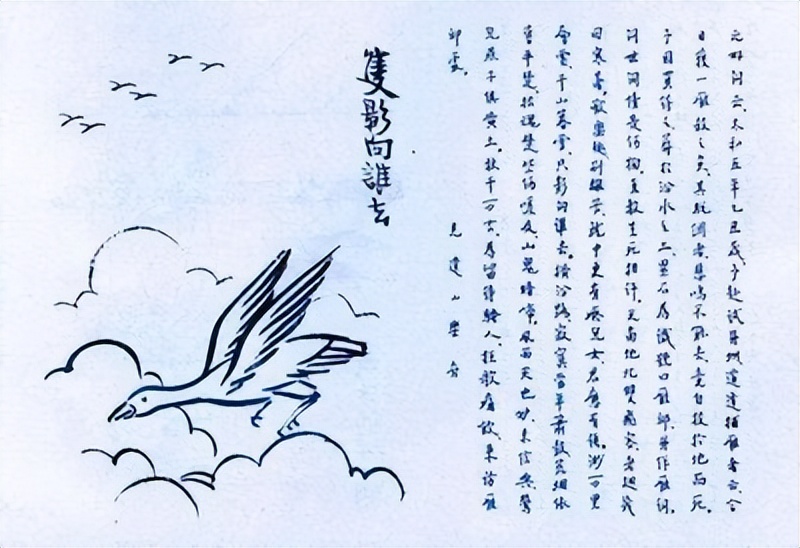 隻影向誰去
元好问云、太和五年乙丑歲、予赴試并州、道逢捕雁者云、今
日獲一雁、殺之矣、其脱網者、悲鳴不能去、竟自投於地而死。
予因買得之、葬於汾水之上、累石为識、號曰雁邱、并作雁词。
问世间情是何物、直教生死相许。天南地北双飛客、老翅幾
回寒暑。歡樂趣、别離苦、就中更有癡兒女。君應有語、渺万里
層雲、千山暮雪、只影向谁去。横汾路、寂寞當年簫鼓、荒煙依
舊平楚。招魂楚些何嗟及、山鬼暗啼風雨。天也妒、未信與、鶯
兒燕子俱黄土。秋千万古、为留待騷人、狂歌痛飲、来訪雁
邱處。 見遺山樂府